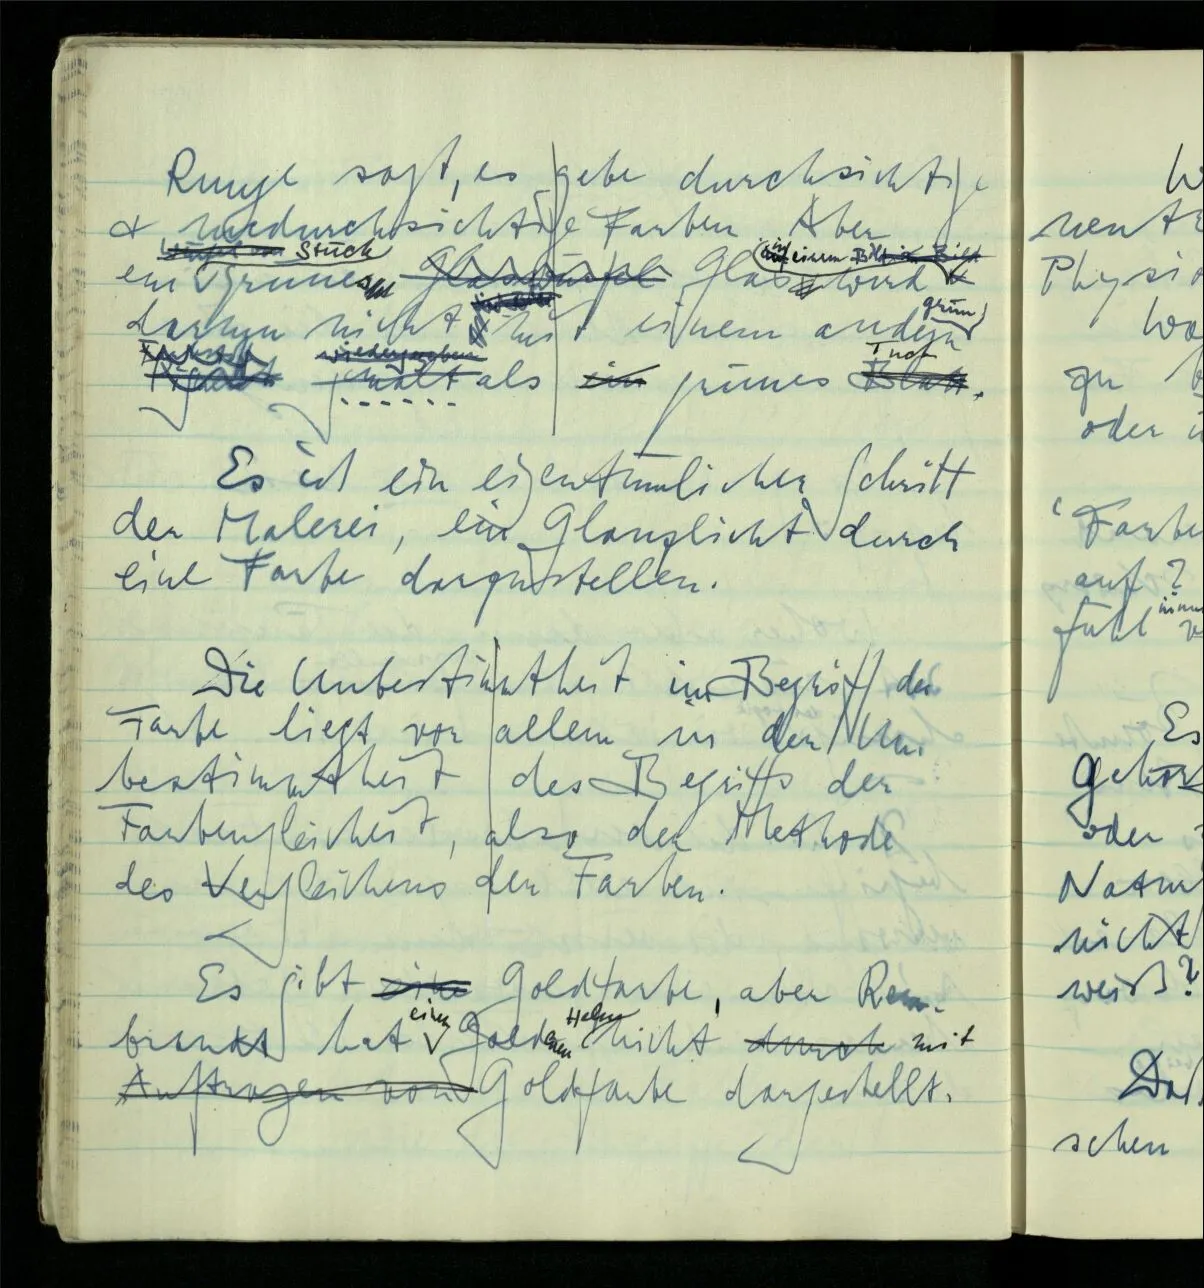 Runge sagt, es gebe durchsichtige
& undurchsichtige Farben. Aber
Stück
ein grünes Glaswürfel Glas wird
in einem Bild im Bild
darum nicht mit einem andern
grün
wiedergegeben
Tuch
gemalt als ein grünes Blatt.
Es ist ein eigentümlicher Schritt
der Malerei, ein Glanzlicht durch
eine Farbe darzustellen.
Die Unbestimmtheit im Begriff der
Farbe liegt vor allem in der Un-
bestimmtheit des Begriffs der
Farbengleichheit, also der Methode
des Vergleichens der Farben.
Es gibt eine Goldfarbe, aber Rem-
brandt hat einen goldenen Helm nicht durch mit
Auftragen von Goldfarbe dargestellt.
Physi
oder
'Farbe
auf?
fühl
Es
gehör
oder
Natur
nicht
weiß?
Da
schen